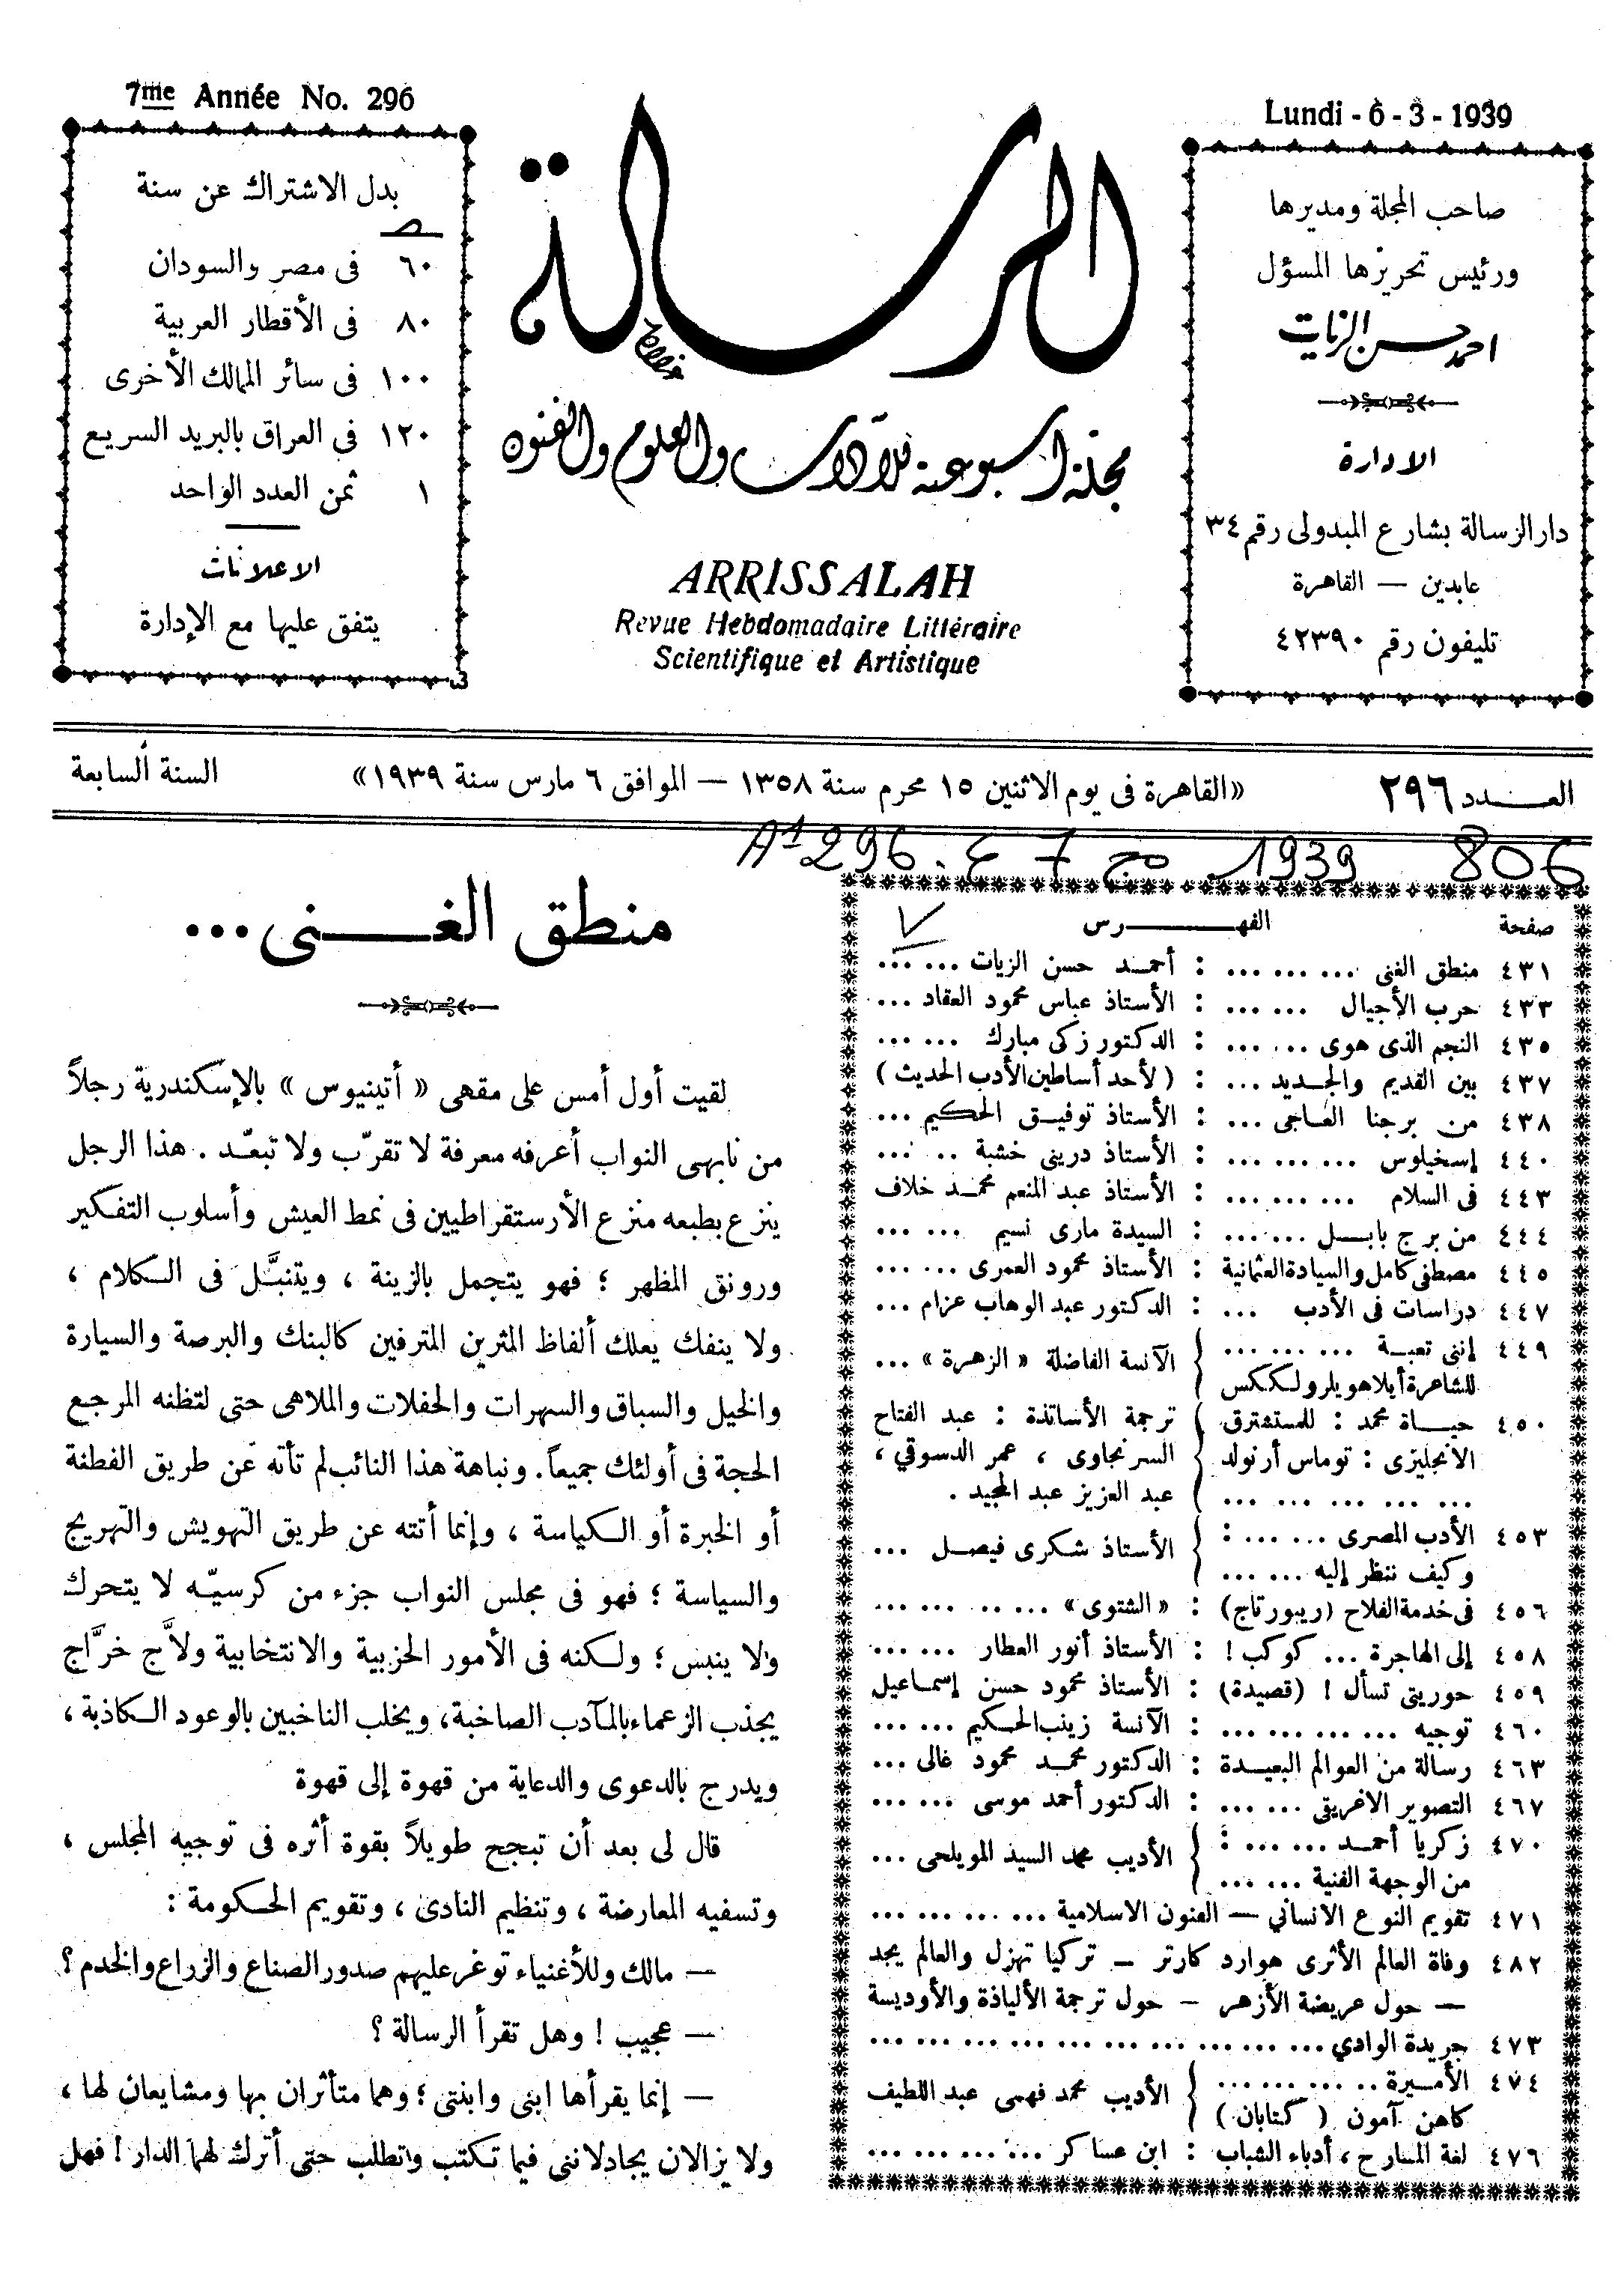 7me Année No. 296
Lundi - 6 - 3 - 1939
صاحب المجلة ومديرها
ورئيس تحريرها المسؤل
احمد حسن الزيات
الادارة
دار الرسالة بشارع المبدولى رقم ٣٤
عابدين — القاهرة
تليفون رقم ٤٢٣٩٠
الرسالة
مجلة أسبوعية للآداب والعلوم والفنون
ARRISSALAH
Revue Hebdomadaire Littéraire
Scientifique et Artistique
بدل الاشتراك عن سنة
٦٠ فى مصر والسودان
٨٠ فى الأقطار العربية
١٠٠ فى سائر الممالك الأخرى
١٢٠ فى العراق بالبريد السريع
١ ثمن العدد الواحد
الاعلانات
يتفق عليها مع الإدارة
العـــدد ٢٩٦
«القاهرة فى يوم الاثنين ١٥ محرم سنة ١٣٥٨ — الموافق ٦ مارس سنة ١٩٣٩»
السنة السابعة
A1 296 . ع 7 مج 1939 806
صفحة الفهــــــرس
٤٣١ منطق الغنى ... ... ... : أحمـد حسن الزيات ... ...
٤٣٣ حرب الأجيال ... ... : الأستاذ عباس محمود العقاد ...
٤٣٥ النجم الذى هوى ... ... : الدكتور زكى مبارك ... ...
٤٣٧ بين القديم والجـديد ... : ( لأحد أساطين الأدب الحديث )
٤٣٨ من برجنا العـاجى ... : الأستاذ توفيـق الحكيم ...
٤٤٠ إسخيلوس ... ... ... : الأستاذ درينى خشبة .. ...
٤٤٣ فى السلام ... ... ... : الأستاذ عبد المنعم محمـد خلاف
٤٤٤ من برج بابـــل ... ... : السيدة مارى نسيم ... ...
٤٤٥ مصطفى كامل والسيادة العثمانية : الأستاذ محمود العمرى ... ...
٤٤٧ دراسات فى الأدب ... : الدكتور عبد الوهاب عزام ...
٤٤٩ إننى تعبـة ... ... ...
للشاعرة أيلا هويلر ولككس } الآنسة الفاضلة « الزهرة » ...
٤٥٠ حيـاة محمد : للمستشرق } ترجمة الأساتذة : عبد الفتاح
الانجليزى : توماس أرنولد } السرنجاوى ، عمر الدسوقي ،
... ... ... ... ... } عبد العزيز عبد المجيد .
٤٥٣ الأدب المصرى ... ... :
وكيف ننظر إليه ... ... } الأستاذ شكرى فيصـل ...
٤٥٦ فى خدمة الفلاح (ريبورتاج) : « الشتوى» ... .. ... ...
٤٥٨ إلى الهاجرة ... كوكب ! : الأستاذ أنور العطار ... ...
٤٥٩ حوريتى تسأل ! (قصيدة) : الأستاذ محمود حسن إسمـاعيل
٤٦٠ توجيه ... ... ... ... : الآنسة زينب الحكيم ... ...
٤٦٣ رسالة من العوالم البعيـدة : الدكتور محمـد محمود غالى ...
٤٦٧ التصوير الاغريقى ... ... : الدكتور أحمد موسى ... ...
٤٧٠ زكريا أحمـد ... ... :
من الوجهة الفنية ... ... } الأديب محمد السيد المويلحى ...
٤٧١ تقويم النوع الانساني — الفنون الاسلامية ... ... ... ...
٤٨٢ وفاة العالم الأثرى هوارد كارتر — تركيا تهزل والعالم يجد
— حول عريضة الأزهر — حول ترجمة الألياذة والأوديسة
٤٧٣ جريدة الوادي ... ... ... ... ... ... ... ... ... ...
٤٧٤ الأمـيرة .. ... ... ...
كاهن آمون ( كتابان ) } الأديب محمد فهمى عبد اللطيف
٤٧٦ لغة المسارح ، أدباء الشباب : ابن عساكر ... ... ... ...
منطق الغـــــنى ...
لقيت أول أمس على مقهى « أتينيوس » بالإسكندرية رجلاً
من نابهى النواب أعرفه معرفة لا تقرّب ولا تبعّـد . هذا الرجل
ينزع بطبعه منزع الأرستقراطيين فى نمط العيش وأسلوب التفكير
ورونق المظهر ؛ فهو يتجمل بالزينة ، ويتنبَّـل فى الـكلام ،
ولا ينفك يعلك ألفاظ المثرين المترفين كالبنك والبرصة والسيارة
والخيل والسباق والسهرات والحفلات والملاهى حتى لتظنه المرجع
الحجة فى أولئك جميعاً . ونباهة هذا النائب لم تأته عن طريق الفطنة
أو الخبرة أو الـكياسة ، وإنما أتته عن طريق التهويش والتهريج
والسياسة ؛ فهو فى مجلس النواب جزء من كرسيّـه لا يتحرك
ولا ينبس ؛ ولـكنه فى الأمور الحزبية والانتخابية ولاَّج خرَّاج
يجذب الزعماء بالمـآدب الصاخبة ، ويخلب الناخبين بالوعود الـكاذبة ،
ويدرج بالدعوى والدعاية من قهوة إلى قهوة
قال لى بعد أن تبجح طويلاً بقوة أثره فى توجيه المجلس ،
وتسفيه المعارضة ، وتنظيم النادى ، وتقويم الحـكومة :
— مالك وللأغنياء توغر عليهم صدور الصناع والزراع والخدم ؟
— عجيب ! وهل تقرأ الرسالة ؟
— إنما يقرأها ابنى وابنتى ؛ وهما متأثران بها ومشايعان لها ،
ولا يزالان يجادلاننى فيما تـكتب وتطلب حتى أترك لهما الدار ! فهل